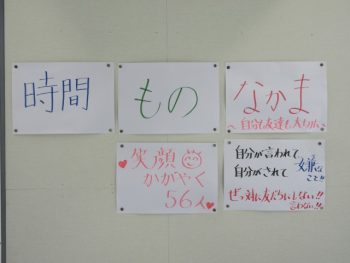 時間
もの
なかま
〜自分も友達も大切に〜
笑顔
かがやく
56人
自分が言われて
自分がされて
嫌なこと!!
ぜっ対に友だちにしない!!
言わない!!